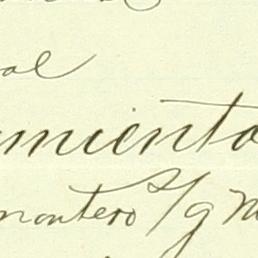 al
miento
montero S/g M